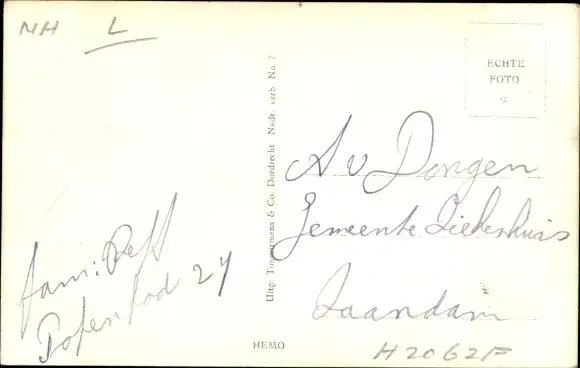 NH L
ECHTE
FOTO
Uitg. Timmermans & Co. Dordrecht Nedr. verb No. 7
A v Dongen
Gemeente Ziekenhuis
Zaandam
fam:
24
HEMO
H2062F